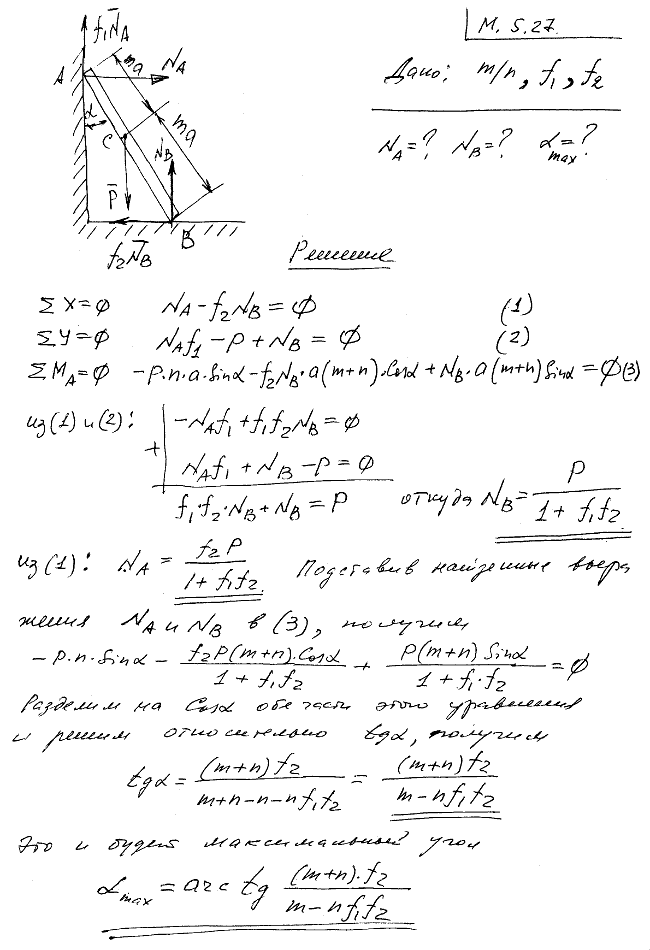 М. 5.27.
f₁N̄_A
A
N_A
ma
Дано: m/n, f₁, f₂
α
C
ma
N_B
N_A=? N_B=? α_max=?
P̄
B
f₂N̄_B
Решение
ΣX=∅ N_A-f₂N_B=∅ (1)
ΣY=∅ N_Af₁-P+N_B=∅ (2)
ΣM_A=∅ -P·n·a·Sinα-f₂N_B·a(m+n)·Cosα+N_B·a(m+n)Sinα=∅(3)
из(1) и (2):
-N_Af₁+f₁f₂N_B=∅
+
N_Af₁+N_B-P=∅
f₁·f₂·N_B+N_B=P откуда N_B=P/(1+f₁f₂)
из(1): N_A=f₂P/(1+f₁f₂). Подставив найденные выра
жения N_A и N_B в (3), получим
-P·n·Sinα-f₂P(m+n)·Cosα/(1+f₁f₂)+P(m+n)Sinα/(1+f₁·f₂)=∅
Разделим на Cosα обе части этого уравнения
и решим относительно tgα, получим
tgα=(m+n)f₂/(m+n-n-nf₁f₂)=(m+n)f₂/(m-nf₁f₂)
Это и будет максимальный угол
α_max=arctg (m+n)·f₂/(m-nf₁f₂)